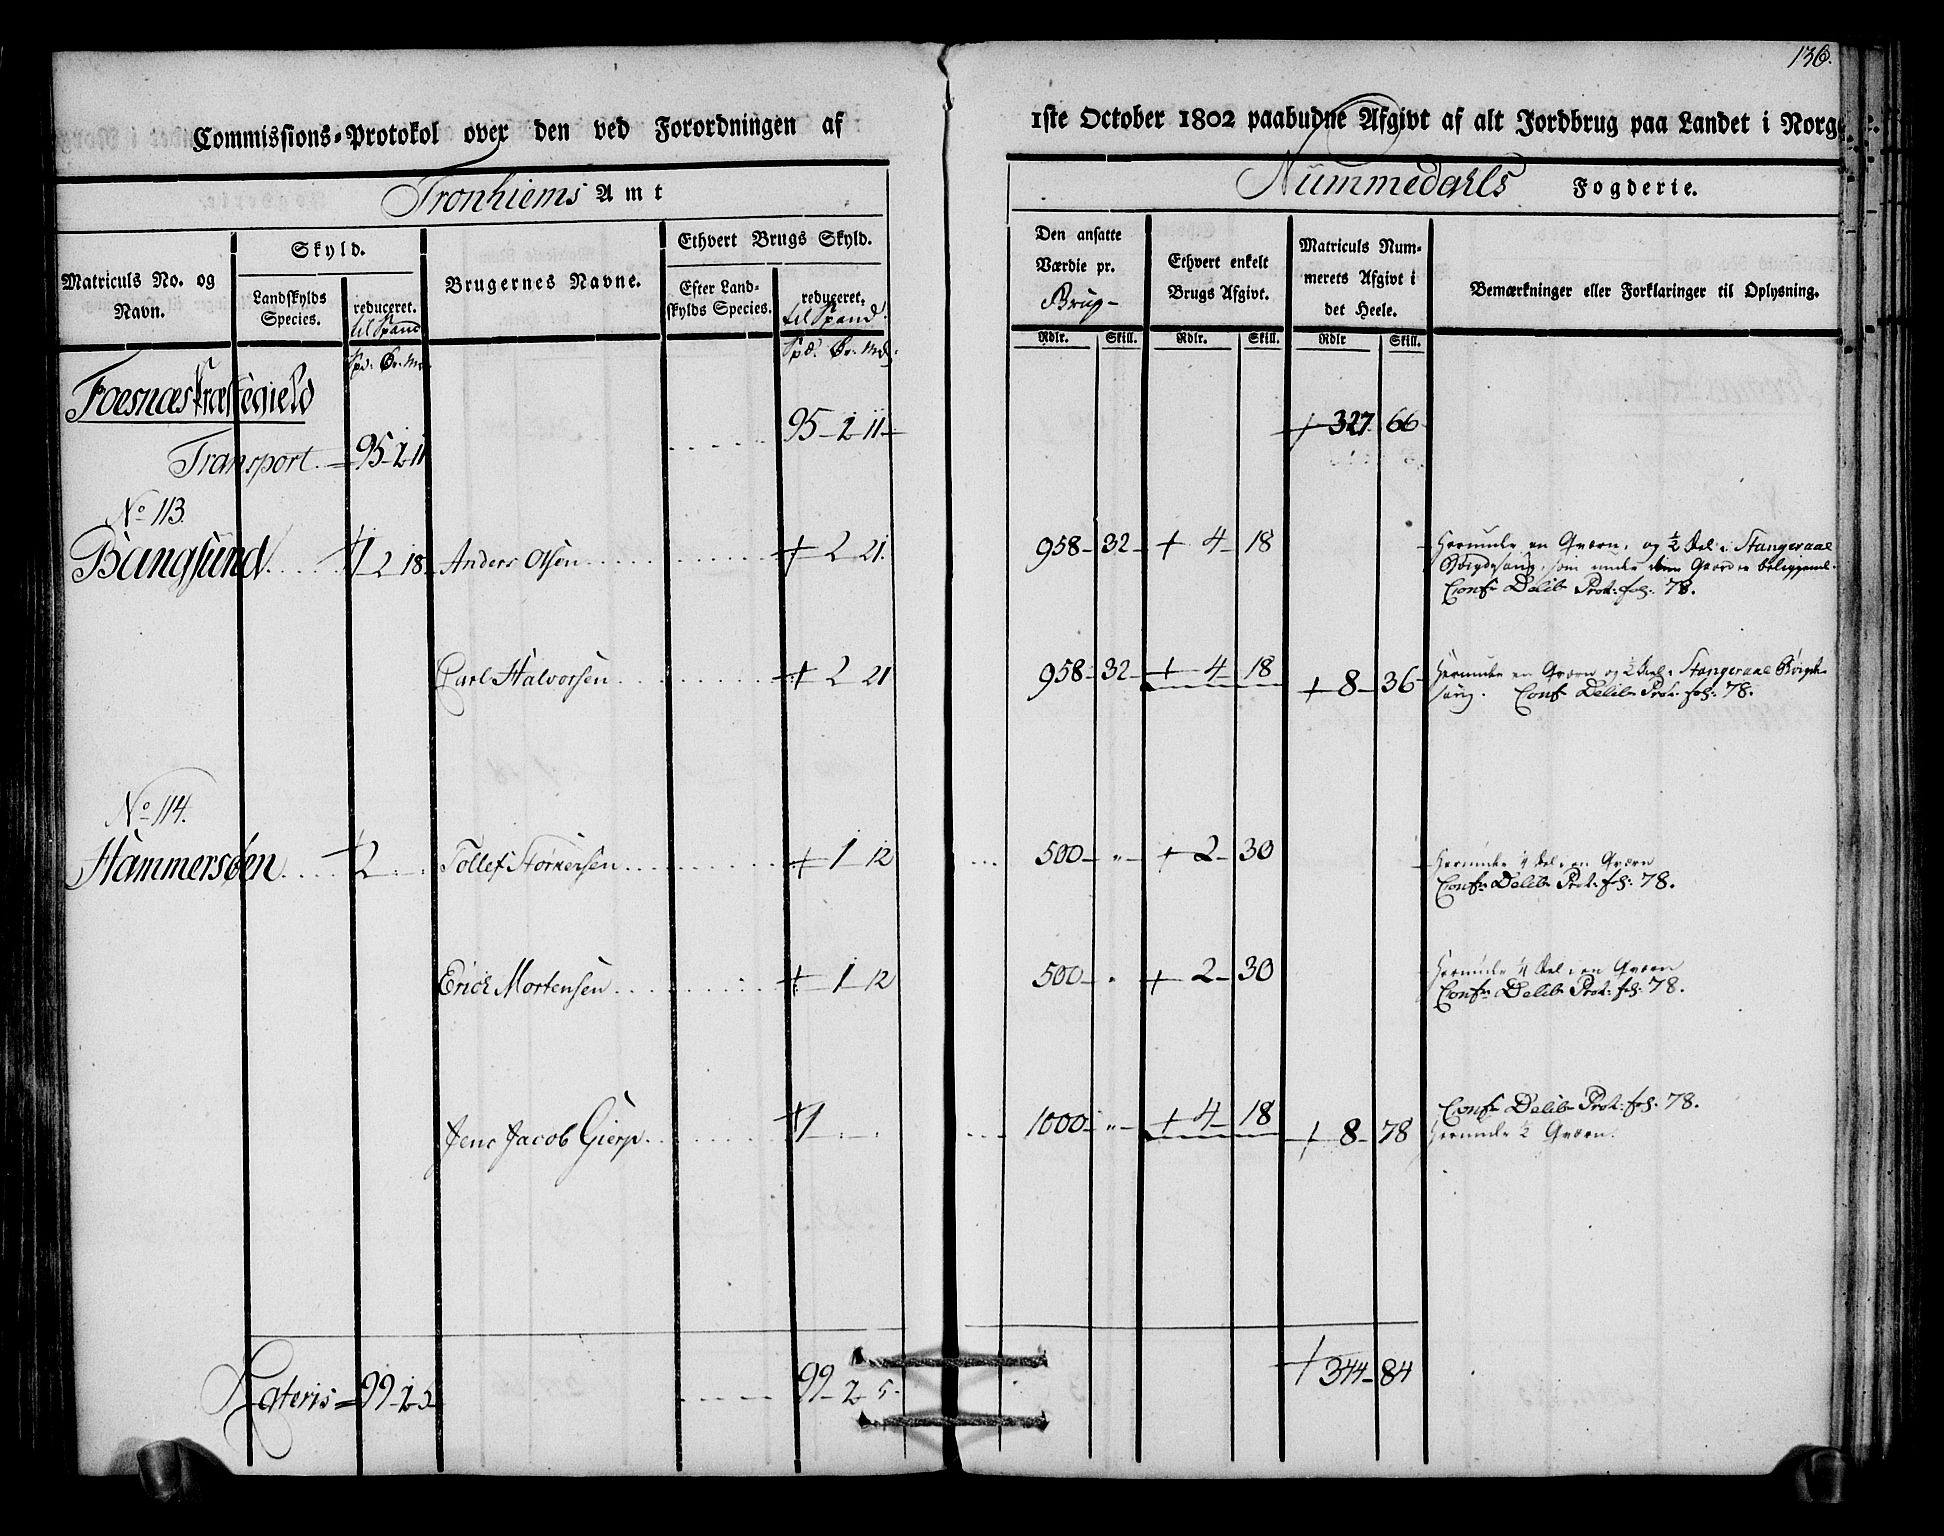 136.
Commissions-Protokol over den ved Forordningen af
1ste October 1802 paabudne Afgivt af alt Jordbrug paa Landet i Norg
Tronhiems Amt
Nummedahls Fogderie.
Matriculs No. og Navn.
Skyld.
Landskylds Species.
reduceret. til Spand
Brugernes Navne.
Ethvert Brugs Skyld.
Efter Landskylds Species.
reduceret. til Spand.
Den ansatte Værdie pr. Brug-
Ethvert enkelt Brugs Afgivt.
Matriculs Nummerets Afgivt i det Heele.
Bemærkninger eller Forklaringer til Oplysning.
Spd: Ør. Mr:
Spd: Ør. Mr:
Rdlr. Skill. Rdlr. Skill. Rdlr Skill.
Foesnæs Præstegield
Transport. 95-2-11 95-2-11 327 66
No 113.
Bangsund 1 2 18 Anders Olsen 2 21. 958-32- 4-18 Herunder en Qværn, og ½ Deel i Stangeraae
Bøigdesaug, som under denne Gaard er beliggende.
Conf: Delib: Prot: fol: 78.
Carl Halvorsen 2 21 958-32- 4-18 8-36 Herunder en Qværn og ½ Deel i Stangeraae Bøigde-
saug. Conf: Delib: Prot: fol: 78.
No 114.
Hammersøen 2 Tollef Størkersen 1 12 500-"- 2-30 Herunder ¼ Deel i en Qværn
Conf: Delib: Prot: fol: 78.
Erich Mortensen 1 12 500-" 2-30 Herunder ¼ Deel i en Qværn
Conf: Delib: Prot: fol: 78.
Jens Jacob Gierp 1 1000-"- 4-18 8-78 Conf: Delib: Prot: fol: 78.
Herunder ½ Qværn.
Lateris 99-2-5 99-2-5- 344-84